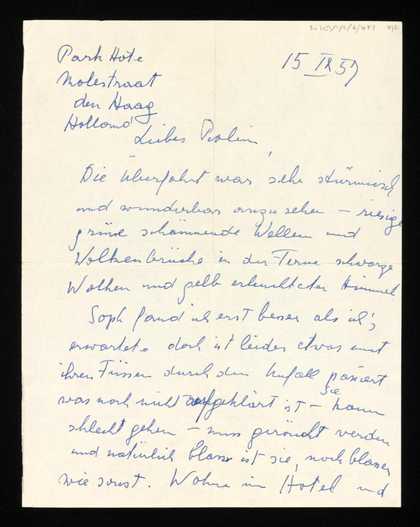 15 IX 59
Park Hôte
Molestraat
den Haag
Holland
Liebes
Die Überfahrt war sehr stürmisch
und wunderbar anzusehen – riesige
grüne schäumende Wellen und
Wolkenbrüche in der Ferne schwarze
Wolken und gelb erleuchteter Himmel
Soph fand ich erst besser als ich's
erwartete doch ist leider etwas mit
ihren Füssen durch den Unfall passiert
was noch nicht aufgeklärt ist – kann
Sie
schlecht gehen – muss geröncht werden
und natürlich blass ist sie, noch blasser
wie sonst. Wohne im Hotel und